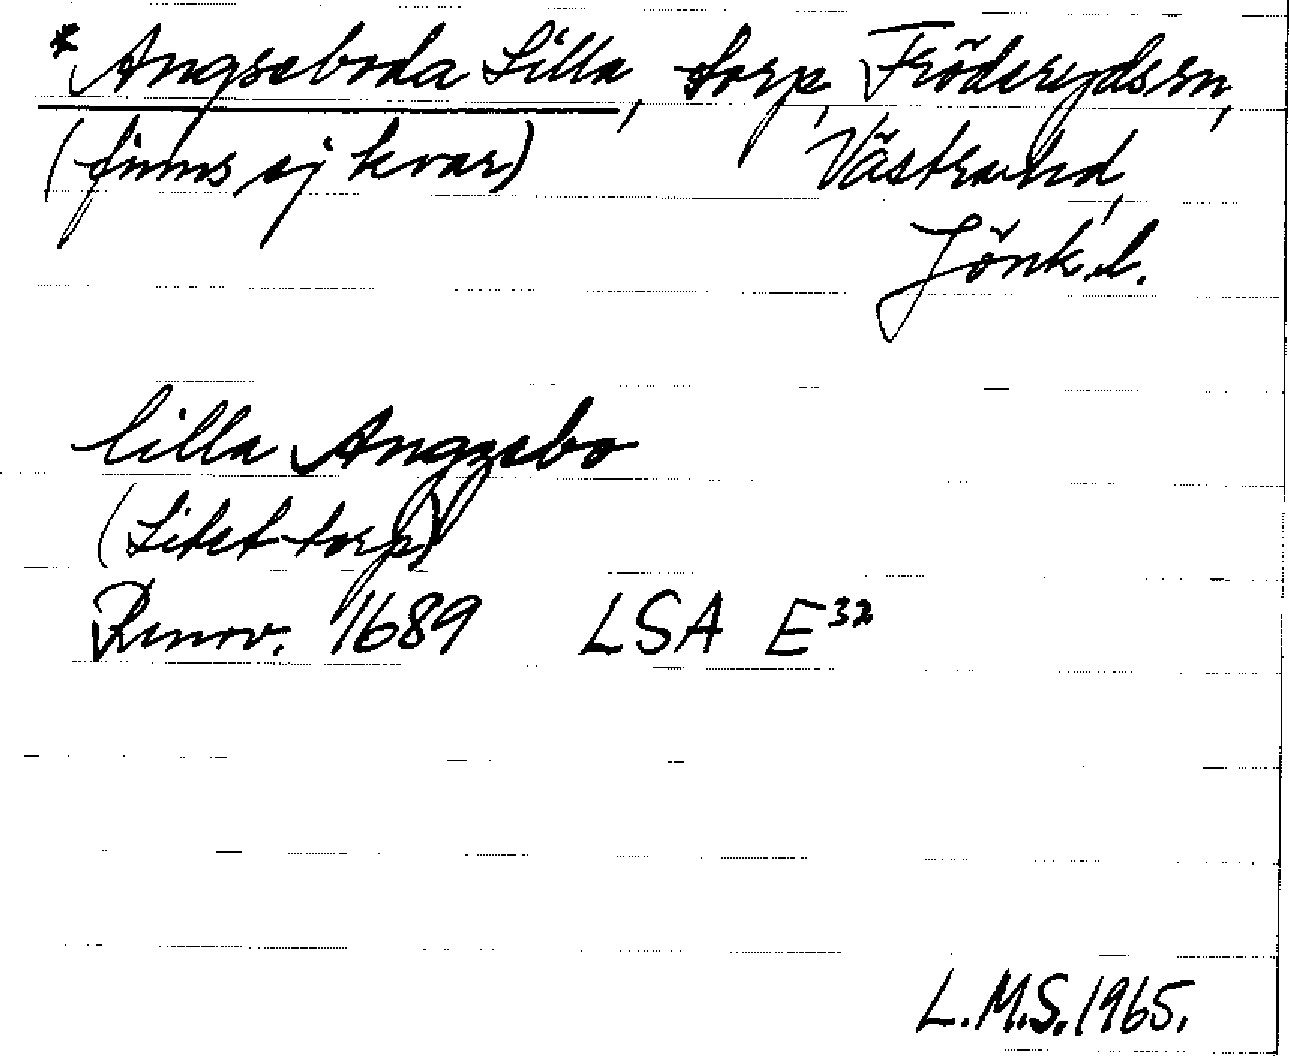 *Angseboda Lilla, torp, Fröderydssn,
(finns ej kvar) Västra hd,
Jönk.l.
lilla Angzebo
(Litet torp)
Renov. 1689 LSA E³²
L.M.S. 1965.